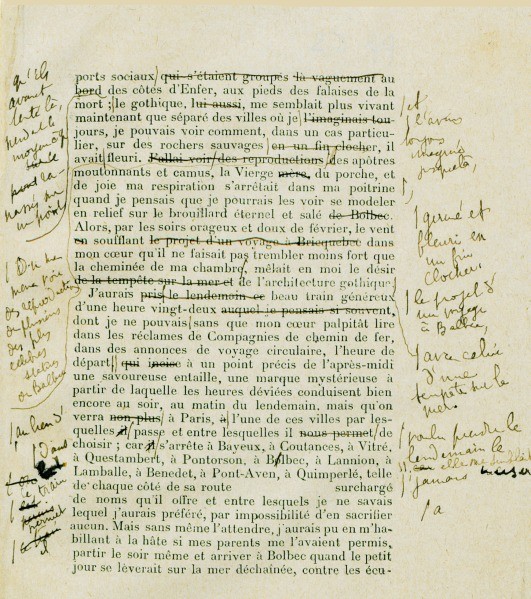 ports sociaux qui s'étaient groupés là vaguement au
bord des côtes d'Enfer, aux pieds des falaises de la
mort ; le gothique, lui aussi, me semblait plus vivant
maintenant que séparé des villes où je l'imaginais tou-
jours, je pouvais voir comment, dans un cas particu-
lier, sur des rochers sauvages en un fin clocher, il
avait fleuri. J'allai voir des reproductions des apôtres
moutonnants et camus, la Vierge mère, du porche, et
de joie ma respiration s'arrêtait dans ma poitrine
quand je pensais que je pourrais les voir se modeler
en relief sur le brouillard éternel et salé de Bolbec.
Alors, par les soirs orageux et doux de février, le vent
en soufflant le projet d'un voyage à Bricquebec dans
mon cœur qu'il ne faisait pas trembler moins fort que
la cheminée de ma chambre, mêlait en moi le désir
de la tempête sur la mer et de l'architecture gothique
J'aurais pris le lendemain ce beau train généreux
d'une heure vingt-deux auquel je pensais si souvent,
dont je ne pouvais sans que mon cœur palpitât lire
dans les réclames de Compagnies de chemin de fer,
dans des annonces de voyage circulaire, l'heure de
départ qui incise à un point précis de l'après-midi
une savoureuse entaille, une marque mystérieuse à
partir de laquelle les heures déviées conduisent bien
encore au soir, au matin du lendemain. mais qu'on
verra non plus à Paris, à l'une de ces villes par les-
quelles il passe et entre lesquelles il nous permet de
choisir ; car il s'arrête à Bayeux, à Coutances, à Vitré,
à Questambert, à Pontorson, à Bolbec, à Lannion, à
Lamballe, à Benodet, à Pont-Aven, à Quimperlé, telle
de chaque côté de sa route surchargé
de noms qu'il offre et entre lesquels je ne savais
lequel j'aurais préféré, par impossibilité d'en sacrifier
aucun. Mais sans même l'attendre, j'aurais pu en m'ha-
billant à la hâte si mes parents me l'avaient permis,
partir le soir même et arriver à Bolbec quand le petit
jour se lèverait sur la mer déchaînée, contre les écu-
qu'ils
avaient
tenté là,
pendant le
moyen âge
On me
mena voir
des reproductions
des plus
célèbres
statues
de Balbec
au lieu d'
Dans
train
permet
et
l'avais
germé et
fleuri en
un fin
clocher.
le projet d'
un voyage
à Balbec
avec celui
d'une
tempête sur la
mer.
voulu prendre le
lendemain le
jamais
a